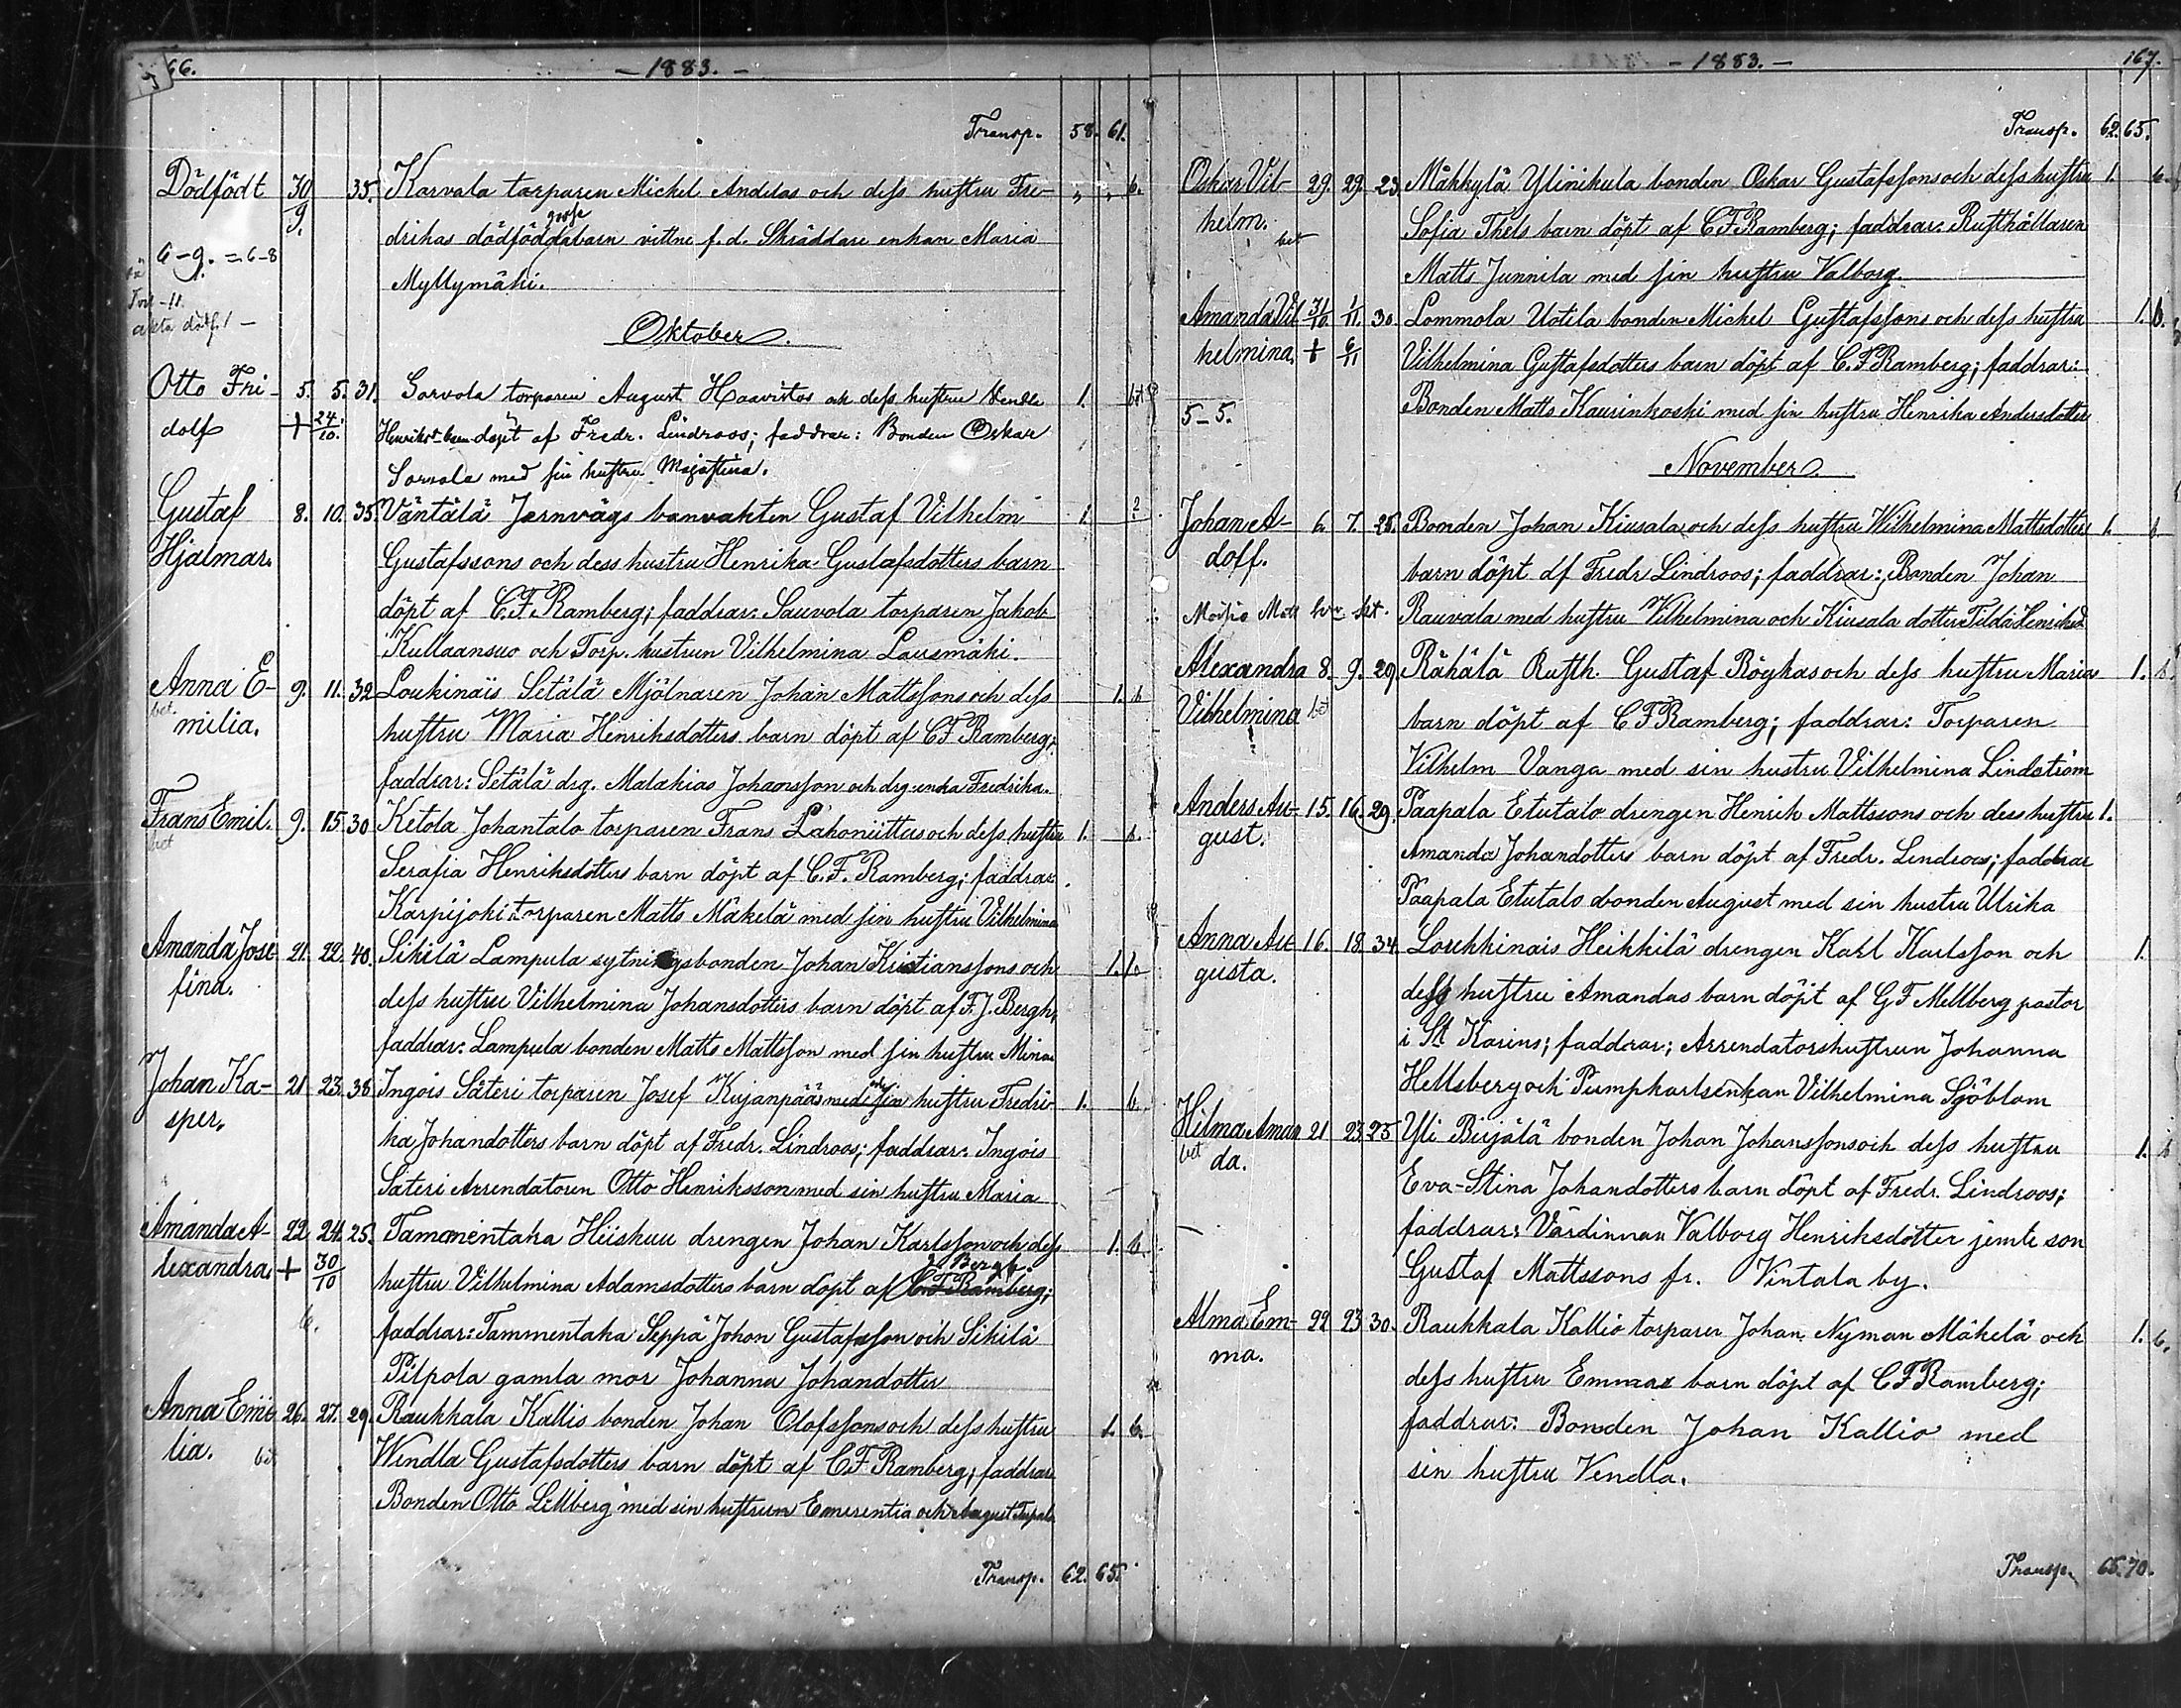 66.
- 1883. -
Transp. 58. 61.
Dödfödt 30/9. 35. Karvala torparen Michel Andras och dess hustru Fre- „ „ 6.
drikas dödfödda gosse barn vittne f.d. Skräddare enkan Maria
6-9. = 6-8
Myllymäki.
äkta dödf. 1 -
Oktober.
Otto Fri- 5. 5. 31. Sorvola torparen August Haavistos och dess hustru Vendla 1. bet
dolf + 24/10. Henriksd. barn döpt af Fredr. Lindroos; faddrar: Bonden Oskar
Sorvola med sin hustru Majastina.
Gustaf 8. 10. 35. Väntälä Jernvägs banvakten Gustaf Vilhelm 1. 2
Hjalmar. Gustafssons och dess hustru Henrika Gustafsdotters barn
döpt af C.F. Ramberg; faddrar: Sauvola torparen Jakob
Kullaansuo och Torp. hustrun Vilhelmina Lausmäki.
Anna E- 9. 11. 32 Loukinais Setälä Mjölnaren Johan Mattssons och dess 1. b
bet. milia. hustru Maria Henriksdotters barn döpt af CF Ramberg;
faddrar: Setälä drg. Malakias Johansson och drg. enka Fredrika.
Frans Emil. 9. 15. 30 Ketola Johantalo torparen Frans Lahoniittus och dess hustru 1. b.
bet Serafia Henriksdotters barn döpt af C.F. Ramberg; faddrar:
Karpijoki torparen Matts Mäkelä med sin hustru Vilhelmina
Amanda Jose- 21. 22. 40. Sikilä Lampula sytningsbonden Johan Kristianssons och 1. b
fina. dess hustru Vilhelmina Johansdotters barn döpt af F.J. Bergh,
faddrar: Lampula bonden Matts Mattsson med sin hustru Mina
Johan Ka- 21. 23. 38 Ingois Säteri torparen Josef Kujanpääs med sin och hustru Fredri- 1. b.
sper. ka Johandotters barn döpt af Fredr. Lindroos; faddrar: Ingois
Säteri Arrendatoren Otto Henriksson med sin hustru Maria
Amanda A- 22 24. 25. Tammentaka Hiiskuu drengen Johan Karlsson och dess 1. b.
lexandra. + 30/10 hustru Vilhelmina Adamsdotters barn döpt af C.F. Ramberg; J Bergh.
b. faddrar: Tammentaka Seppä Johan Gustafsson och Sikilä
Pilpola gamla mor Johanna Johandotter
Anna Emi- 26. 27. 29. Raukkala Kallio bonden Johan Olofssons och dess hustru 1. b.
lia. bet Wendla Gustafsdotters barn döpt af C.F. Ramberg; faddrar:
Bonden Otto Lillberg med sin hustrun Emerentia och August
Transp. 62. 65.
- 1883. - 167.
Transp. 62. 65.
Oskar Vil- 29. 29. 23. Mäkkylä Ylinikula bonden Oskar Gustafssons och dess hustru 1. b.
helm. bet Sofia Thels barn döpt af CF Ramberg; faddrar: Rusthållaren
Matts Junnila med sin hustru Valborg.
Amanda Vil- 31/10. 1/11. 30. Lommola Uotila bonden Michel Gustafssons och dess hustru 1. b.
helmina. + 6/11 Vilhelmina Gustafsdotters barn döpt af C.F Ramberg; faddrar:
5-5. Bonden Matts Kaurinkoski med sin hustru Henrika Andersdotter
November.
Johan A- 6. 7. 25. Bonden Johan Kiusala och dess hustru Wilhelmina Mattsdotters 1. b
dolf. barn döpt af Fredr Lindroos; faddrar: Bonden Johan
Rauvala med hustru Vilhelmina och Kiusala dotter Tilda Henriksd
Alexandra 8. 9. 29. Rähälä Rusth. Gustaf Röykas och dess hustru Maria 1. b.
Vilhelmina bet barn döpt af CF Ramberg; faddrar: Torparen
Vilhelm Vanga med sin hustru Vilhelmina Lindström
Anders Au- 15. 16. 29. Paapala Etutalo drengen Henrik Mattssons och dess hustru 1.
gust. Amanda Johandotters barn döpt af Fredr. Lindroos; faddrar
Paapala Etutalo bonden August med sin hustru Ulrika
Anna Au- 16. 18. 34. Loukkinais Heikkilä drengen Karl Karlsson och 1.
gusta. dess hustru Amandas barn döpt af GF Mellberg pastor
i St Karins; faddrar; Arrendatorshustrun Johanna
Hellsberg och Pumpkarlsenkan Vilhelmina Sjöblom
Hilma Aman 21 23. 25. Yli Birjälä bonden Johan Johanssons och dess hustru 1. b
bet da. Eva-Stina Johandotters barn döpt af Fredr. Lindroos;
faddrar: Värdinnan Valborg Henriksdotter jemte son
Gustaf Mattssons fr. Vintala by.
Alma Em- 22 23 30. Raukkala Kallio torparen Johan Nyman Mäkelä och 1. b.
ma. dess hustru Emmas barn döpt af CF Ramberg;
faddrar: Bonden Johan Kallio med
sin hustru Vendla.
Transp. 65. 70.